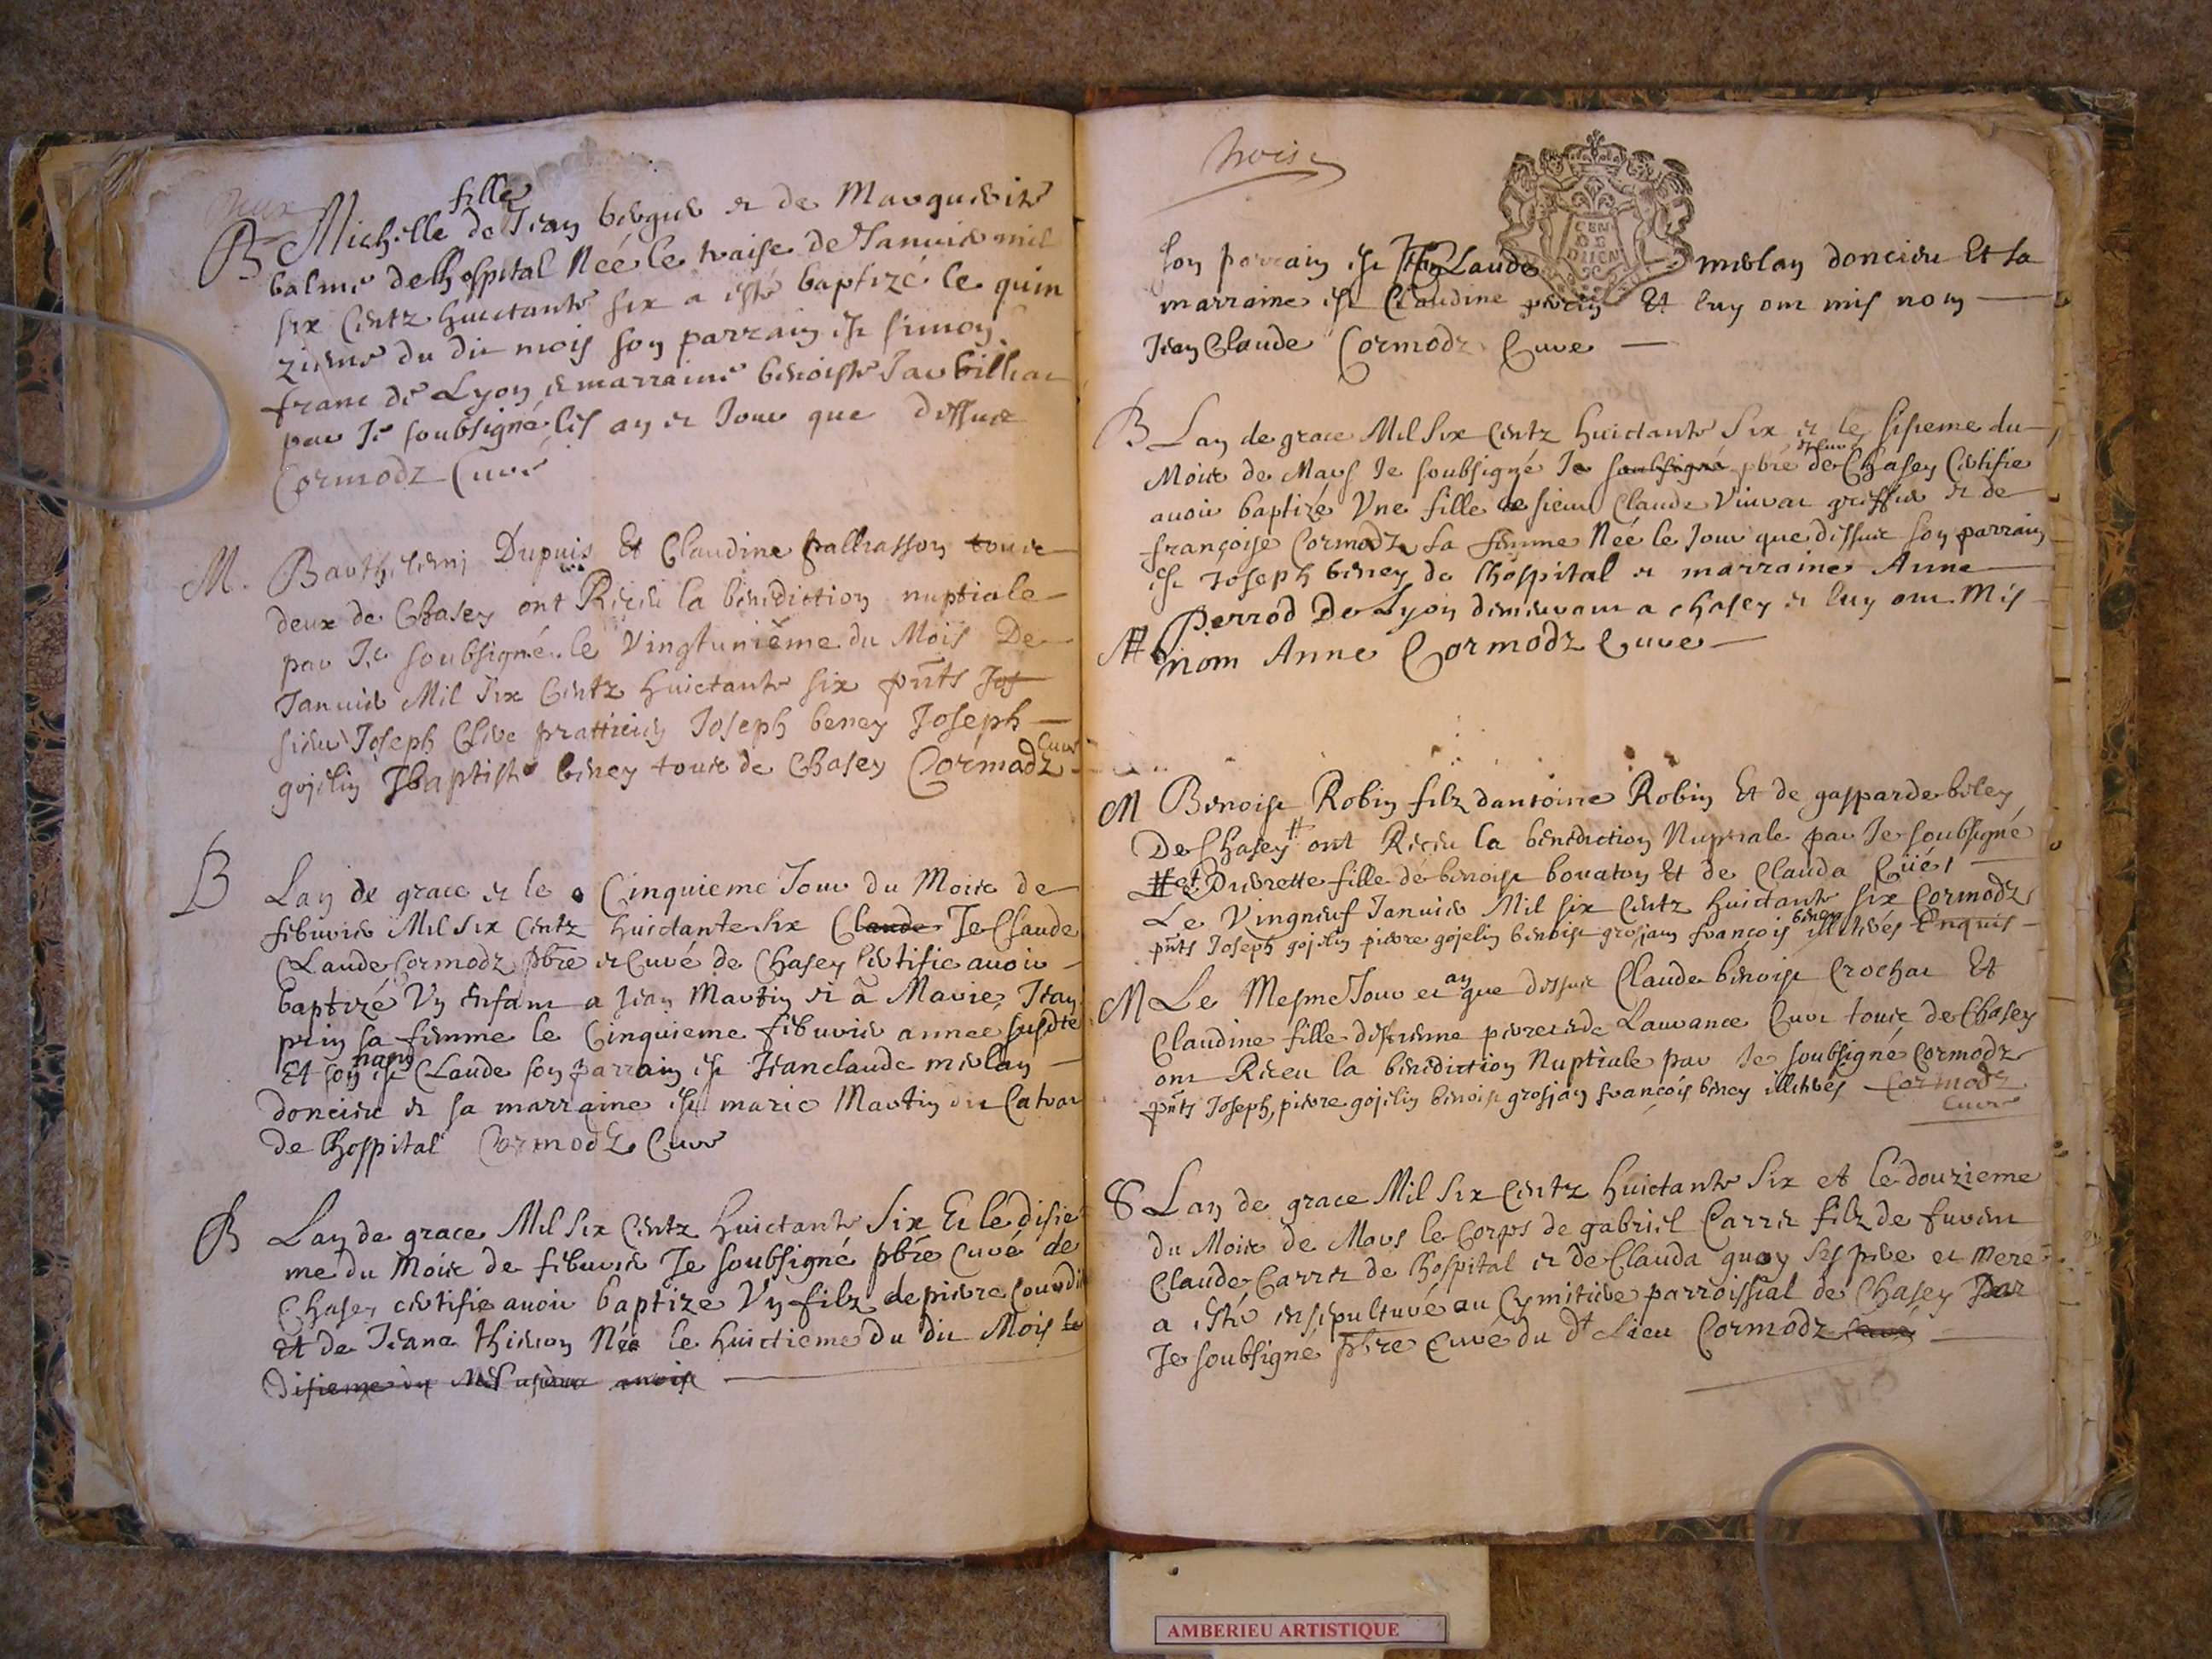 fille
B Michelle de Jean bergier et de Marguerite
balme de lhospital Née le traise de Januier mil
six Centz huictante six a esté baptizé le quin
zieme du dit mois son parrain est simon
franc de Lyon et marraine benoiste
par Je soubsigné les an et Jour que dessus
Cormodz Curé
M. Barthelemi Dupuis Et Claudine tous
deux de Chasey ont Receu la benediction nuptiale
par Je soubsigné le Vingtunième du Mois De
Januier Mil Six Centz huictante six pnts Jos
sieur Joseph Clere pratticien Joseph beney Joseph
gojelin Jbaptiste beney tous de Chasey Cormodz Curé
B Lan de grace et le Cinquieme Jour du Mois de
feburier Mil Six Centz huictante six Claude Je Claude
Claude Cormodz pbre et Curé de Chasey Certifie auoir
baptizé Vn Enfant a Jean Martin et a Marie Jean
prin sa femme le Cinquieme feburier annee susdte
Et son nom est Claude son parrain est Jeanclaude merlan
doncieu et sa marraine est marie Martin du Catron
de lhospital Cormodz Curé
B Lan de grace Mil Six Centz huictante Six Et le disie
me du Mois de feburier Je soubsigné pbre Curé de
Chasey certifie auoir baptize Vn filz de pierre
Et de Jeana thieuon Née le huictieme du dit Mois le
disieme
trois
son parrain est Jean Laude merlan doncieu Et sa
marraine est Claudine Et luy ont mis nom
Jean Claude Cormodz Curé
B Lan de grace Mil Six Centz huictante Six et le sisieme du
Mois de Mars Je soubsigné Je soubsigné pbre et Curé de Chasey Certifie
auoir baptizé Vne fille de sieur Claude Viurat greffier et de
françoise Cormodz sa femme Née le Jour que dessus son parrain
est Joseph beney de lhospital et marraine Anne
Perrod De Lyon demeurant a chasey et luy ont Mis
nom Anne Cormodz Curé
M Benoist Robin filz dantoine Robin Et de gasparde beley
De Chasey # ont Receu la benediction Nuptiale par Je soubsigné
# et Pierrette fille de benoist bouaton Et de Clauda
Le Vingneuf Januier Mil six Centz huictante six Cormodz
pnts Joseph gojelin pierre gojelin benoist grosjean françois beney illiterés Enquis
M Le Mesme Jour et an que dessus Claude benoist Crochat Et
Claudine fille destienne pierre et de Laurance Cure tous de Chasey
ont Receu la benediction Nuptiale par Je soubsigné Cormodz
pnts Joseph, pierre gojelin benoist grosjan françois beney illiterés Cormodz
Curé
S Lan de grace Mil Six Centz huictante Six et le douzieme
du Mois de Mars le Corps de gabriel Carrer filz de fureut
Claude Carrer de lhospital et de Clauda quoy ses pere et Mere
a esté ensepulturé au Cymitiere parroissial de Chasey Par
Je soubsigné pbre Curé du Dt Lieu Cormodz Curé
AMBERIEU ARTISTIQUE